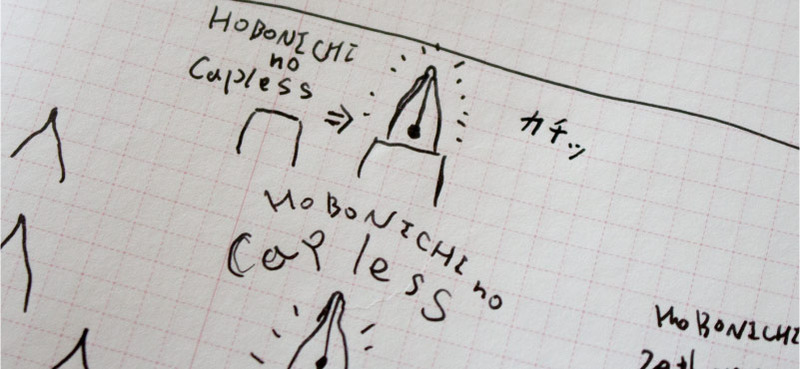 HOBONICHI
no
Capless
⇒
カチッ
HOBONICHI no
Capless
HOBONICHI